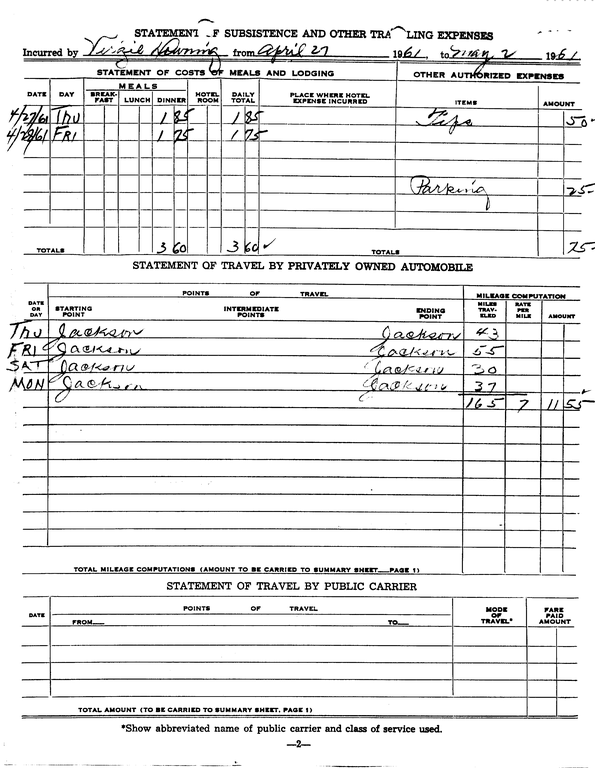 STATEMENT OF SUBSISTENCE AND OTHER TRA LING EXPENSES
Incurred by Virgil Downing from April 27 1961, to May 2 1961
STATEMENT OF COSTS OF MEALS AND LODGING OTHER AUTHORIZED EXPENSES
MEALS
DATE DAY BREAK-FAST LUNCH DINNER HOTEL ROOM DAILY TOTAL PLACE WHERE HOTEL EXPENSE INCURRED ITEMS AMOUNT
4/27/61 THU 1 85 1 85 Tips 50-
4/28/61 FRI 1 75 1 75
Parking 25-
TOTALS 3 60 3 60 ✓ TOTALS 75-
STATEMENT OF TRAVEL BY PRIVATELY OWNED AUTOMOBILE
POINTS OF TRAVEL MILEAGE COMPUTATION
DATE OR DAY STARTING POINT INTERMEDIATE POINTS ENDING POINT MILES TRAV-ELED RATE PER MILE AMOUNT
THU Jackson Jackson 43
FRI Jackson Jackson 55
SAT Jackson Jackson 30
MON Jackson Jackson 37
165 7 11 55
TOTAL MILEAGE COMPUTATIONS (AMOUNT TO BE CARRIED TO SUMMARY SHEET—PAGE 1)
STATEMENT OF TRAVEL BY PUBLIC CARRIER
POINTS OF TRAVEL
DATE FROM— TO— MODE OF TRAVEL* FARE PAID AMOUNT
TOTAL AMOUNT (TO BE CARRIED TO SUMMARY SHEET, PAGE 1)
*Show abbreviated name of public carrier and class of service used.
—2—